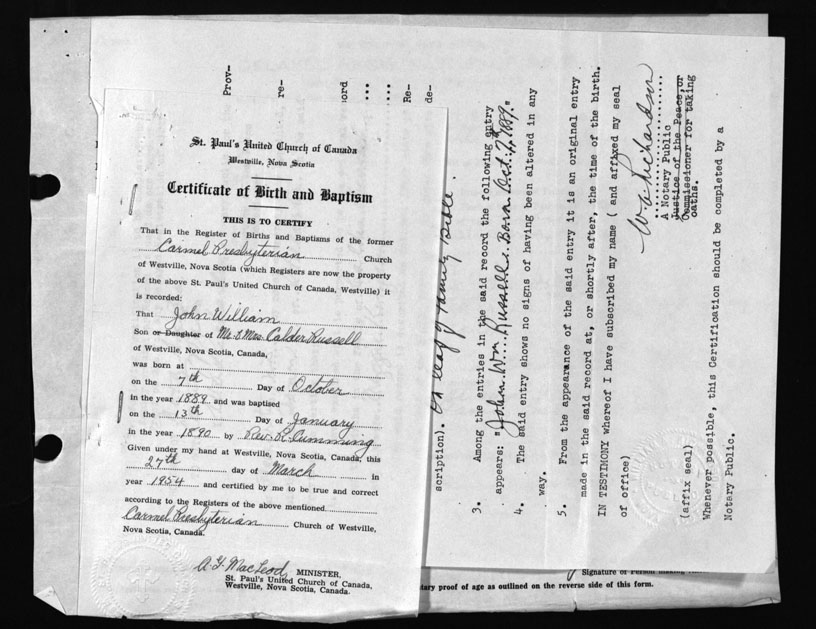 St. Paul's United Church of Canada
Westville, Nova Scotia
Certificate of Birth and Baptism
THIS IS TO CERTIFY
That in the Register of Births and Baptisms of the former
Carmel Presbyterian Church
of Westville, Nova Scotia (which Registers are now the property
of the above St. Paul's United Church of Canada, Westville) it
is recorded:
That John William
Son or Daughter of Mr. & Mrs. Calder Russell
of Westville, Nova Scotia, Canada,
was born at
on the 7th Day of October
in the year 1889 and was baptised
on the 13th Day of January
in the year 1890 by Rev. R. Cumming
Given under my hand at Westville, Nova Scotia, Canada, this
27th day of March in
year 1954 and certified by me to be true and correct
according to the Registers of the above mentioned
Carmel Presbyterian Church of Westville,
Nova Scotia, Canada.
A. Y. MacLeod, MINISTER,
St. Paul's United Church of Canada,
Westville, Nova Scotia, Canada.
Prov-
re-
ord
Re-
de-
scription). On leaf of family Bible.
3. Among the entries in the said record the following entry
appears: "John. Wm. Russell. Born Oct. 7th, 1889."
4. The said entry shows no signs of having been altered in any
way.
5. From the appearance of the said entry it is an original entry
made in the said record at, or shortly after, the time of the birth.
IN TESTIMONY whereof I have subscribed my name ( and affixed my seal
of office)
W. A. Richardson
A Notary Public
Justice of the Peace, or
Commissioner for taking
oaths.
(affix seal)
Whenever possible, this Certification should be completed by a
Notary Public.
Signature of Person making
tary proof of age as outlined on the reverse side of this form.